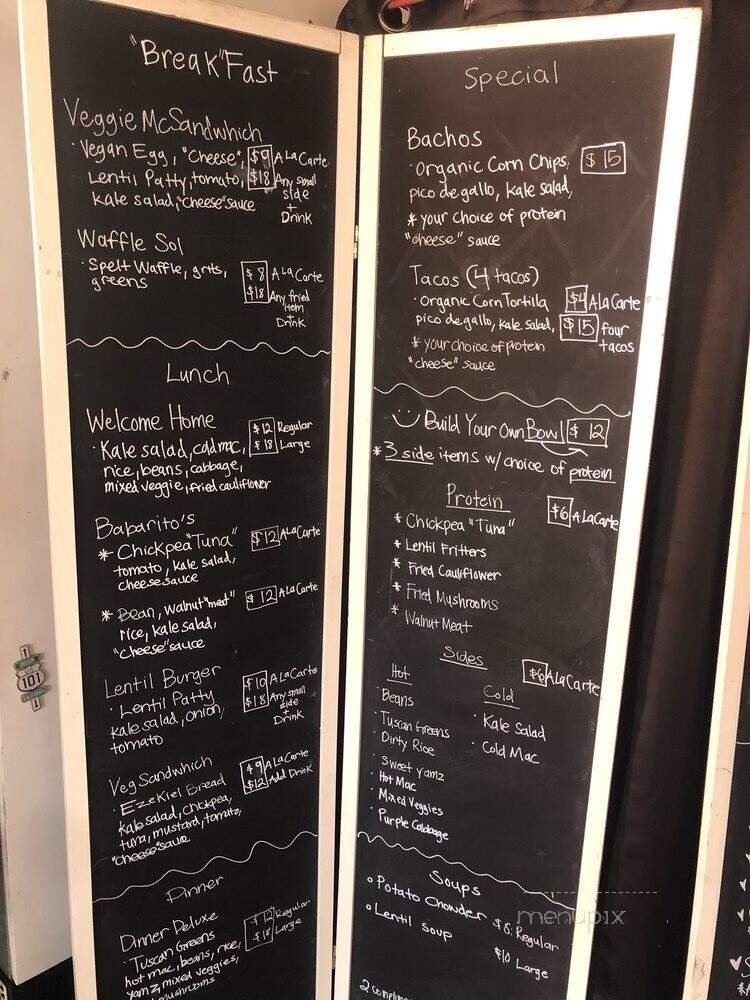 "Break"Fast
Veggie McSandwhich
· Vegan Egg, "Cheese", $9 A La Carte
Lentil Patty, tomato, $18 Any small side + Drink
kale salad, "cheese" sauce
Waffle Sol
· Spelt Waffle, grits, $8 A La Carte
greens $18 Any fried item + Drink
Lunch
Welcome Home
· Kale salad, cold mac, $12 Regular
rice, beans, cabbage, $18 Large
mixed veggie, fried cauliflower
Babarito's
* Chickpea "Tuna" $12 A La Carte
tomato, kale salad,
cheese sauce
* Bean, walnut "meat" $12 A La Carte
rice, kale salad,
"cheese" sauce
Lentil Burger
· Lentil Patty $10 A La Carte
kale salad, onion, $18 Any small side + Drink
tomato
Veg Sandwhich
· Ezekiel Bread $9 A La Carte
kale salad, chickpea, $12 Add Drink
tuna, mustard, tomato,
"cheese" sauce
Dinner
Dinner Deluxe
· Tuscan Greens $12 Regular
hot mac, beans, rice, $18 Large
yamz, mixed veggies,
mushrooms
Special
Bachos
· Organic Corn Chips, $15
pico de gallo, kale salad,
* your choice of protein
"cheese" sauce
Tacos (4 tacos)
· Organic Corn Tortilla $4 A La Carte
pico de gallo, kale salad, $15 four tacos
* your choice of protein
"cheese" sauce
Build Your Own Bowl $12
* 3 side items w/ choice of protein
Protein $6 A La Carte
* Chickpea "Tuna"
* Lentil Fritters
* Fried Cauliflower
* Fried Mushrooms
* Walnut Meat
Sides $6 A La Carte
Hot
· Beans
· Tuscan Greens
· Dirty Rice
· Sweet Yamz
· Hot Mac
· Mixed Veggies
· Purple Cabbage
Cold
· Kale Salad
· Cold Mac
Soups
° Potato Chowder $8: Regular
° Lentil Soup $10 Large
101
menupix